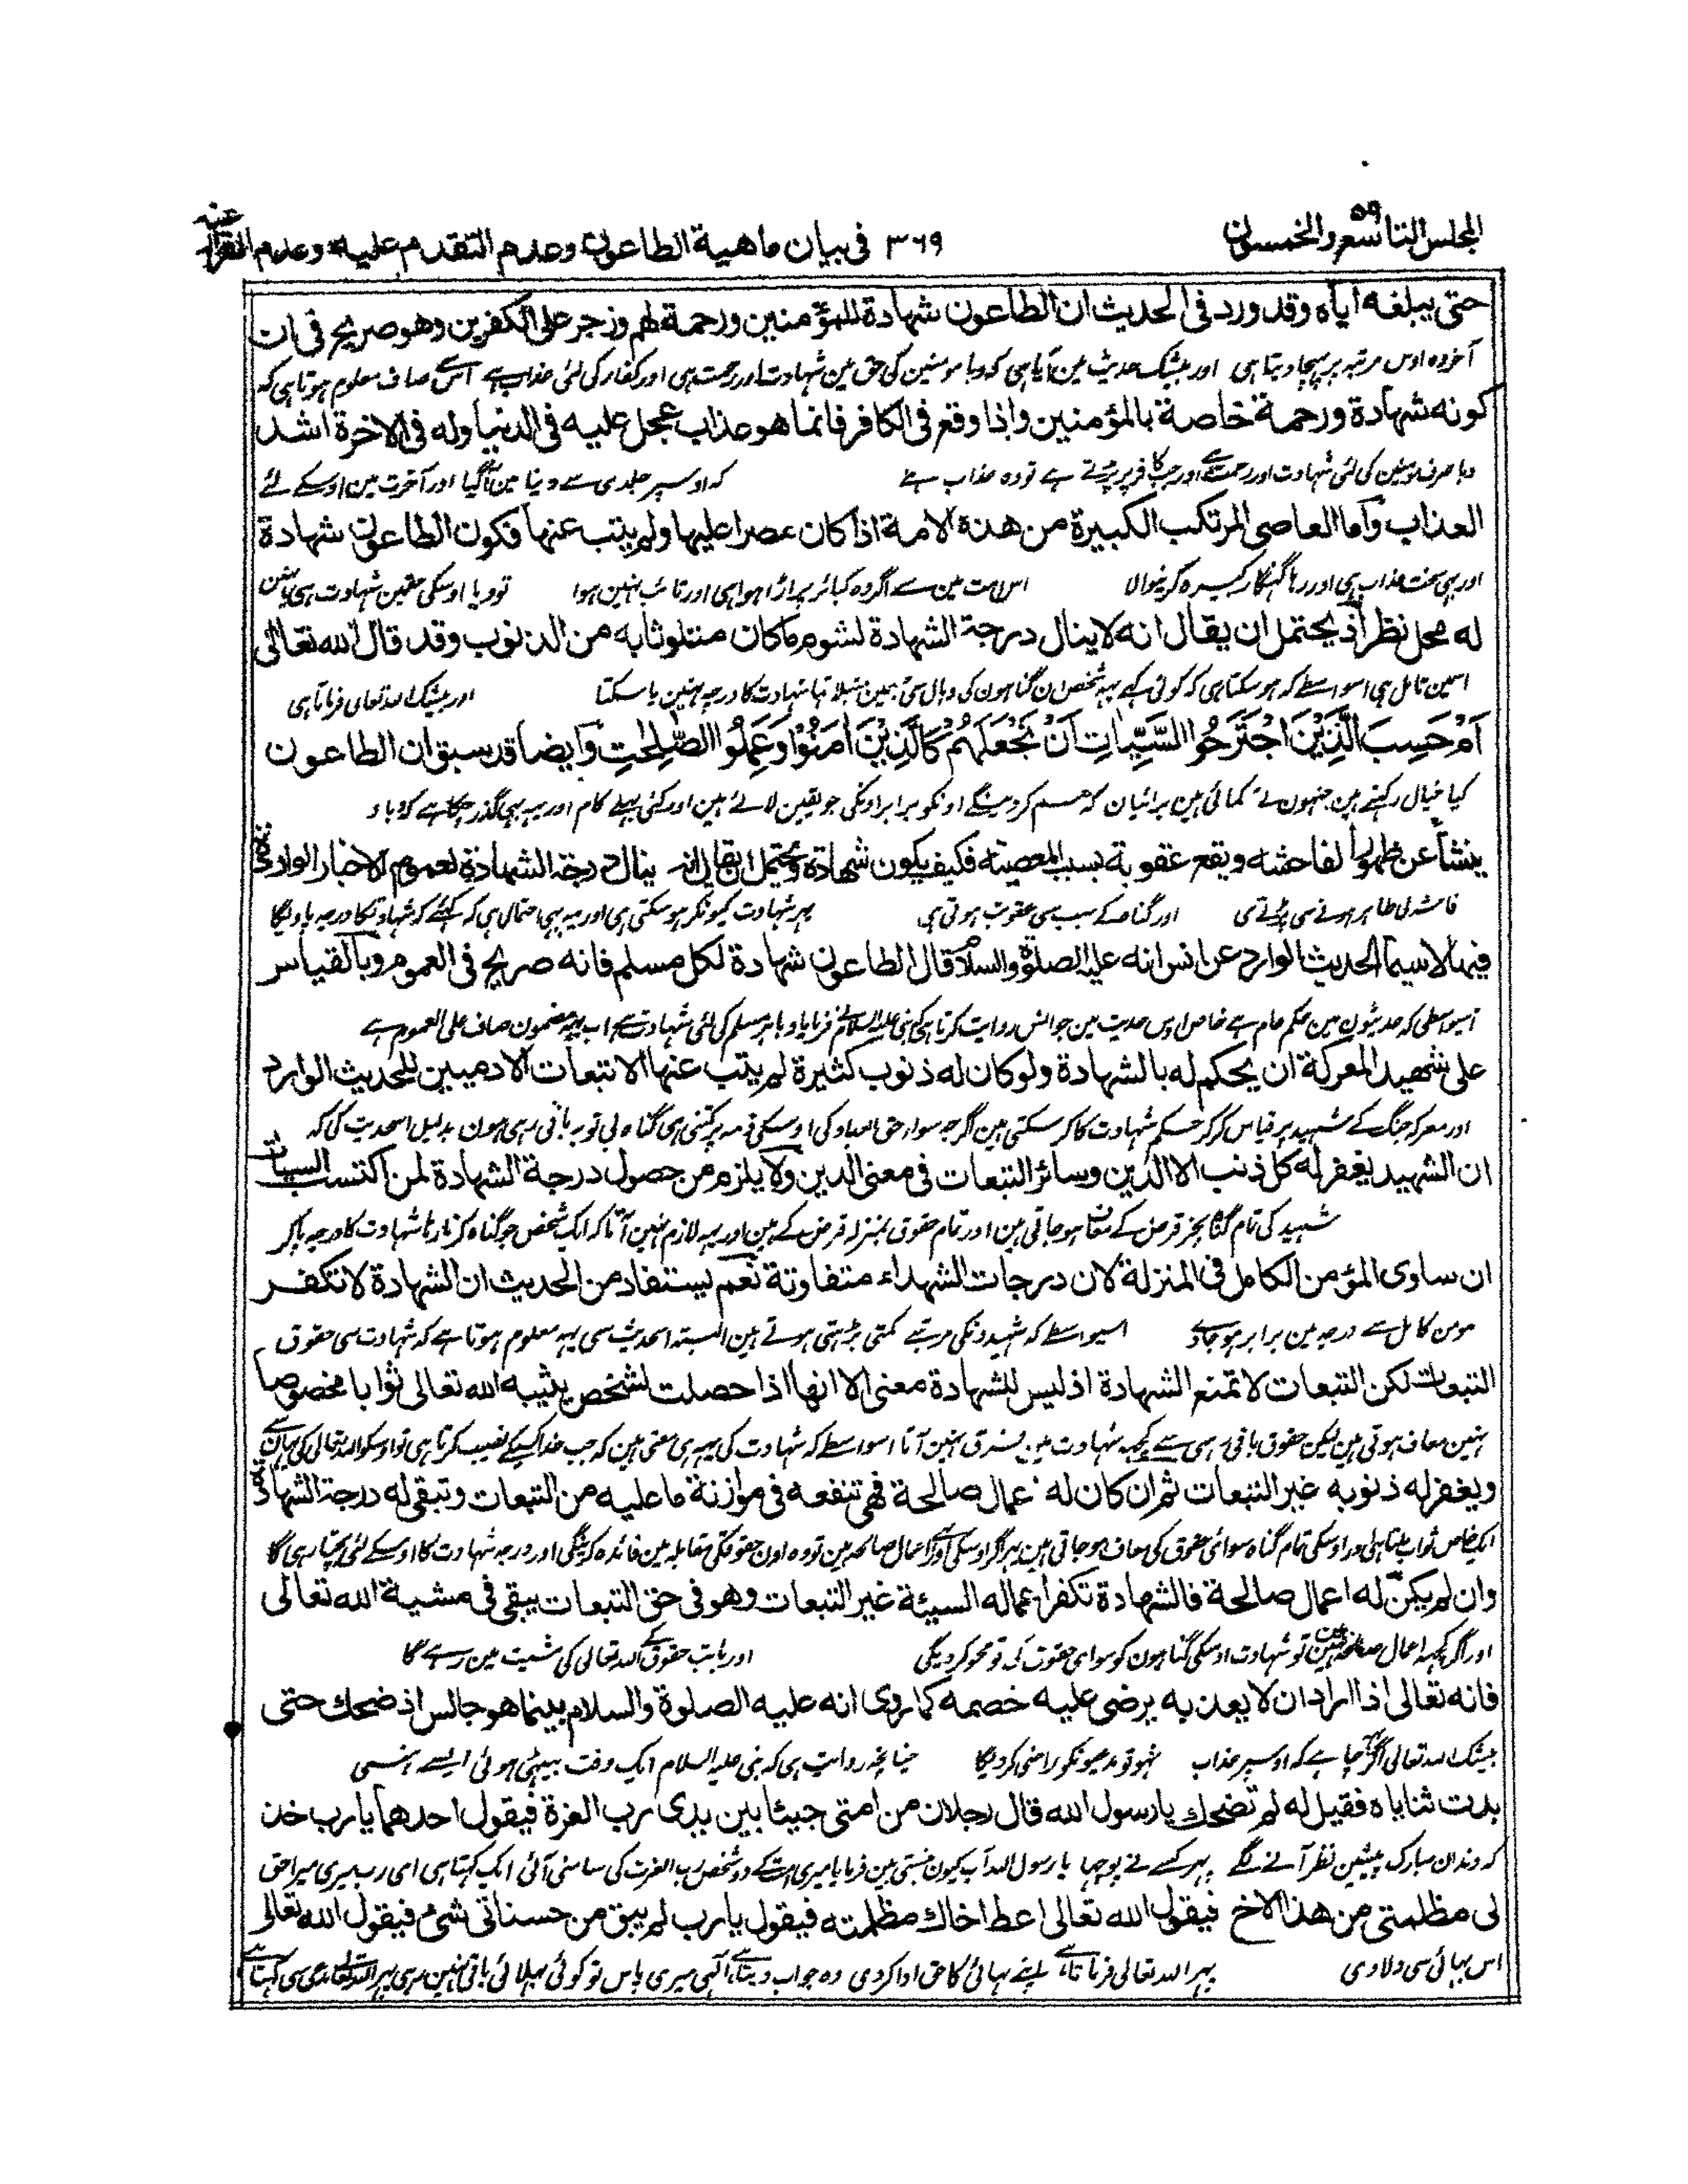 المجلس التاسع والخمسون ۵۹
۳۶۹ فی بیان ماهية الطاعون وعدم التقدم عليه وعدم الفرار عنه
حتى يبلغه اياه وقد ورد فى الحديث ان الطاعون شهادة للمؤمنين ورحمة لهم وزجر على الكفرين وهو صريح فى ان
آخر وہ اوس مرتبہ پر پہنچا دیتا ہی اور بیشک حدیث مین آیا ہی کہ وبا مومنین کی حق مین شہادت اور رحمت ہی اور کفار کی لئی عذاب ہے اس سی صاف معلوم ہوتا ہی کہ
كونه شهادة ورحمة خاصة بالمؤمنين واذا وقع فى الكافر فانما هو عذاب عجل عليه فى الدنيا وله فى الاخرة اشد
وبا صرف مومنین کی لئی شہادت اور رحمت ہے اور جب کافر پر پڑتے ہے تو وہ عذاب ہے کہ اوسپر جلدی سے دنیا مین آگیا اور آخرت مین اوسکے لئے
العذاب واما العاصى المرتكب الكبيرة من هذه الامة اذا كان مصرا عليها ولم يتب عنها فكون الطاعون شهادة
اور بہی سخت عذاب ہی اور رہا گنہگار کبیرہ کرنیوالا اس امت مین سے اگر وہ کبائر پر اڑا ہوا ہی اور تائب نہین ہوا تو وبا اوسکی حقمین شہادت ہی یا نہین
له محل نظر اذ يحتمل ان يقال انه لا ينال درجة الشهادة لشوم ما كان متلوثا به من الذنوب وقد قال الله تعالى
اسمین تامل ہی اسواسطے کہ ہو سکتا ہی کہ کوئی کہے یہہ شخص ان گناہون کی وبال سی جنمین مبتلا تہا شہادت کا درجہ نہین پا سکتا اور بیشک اللہ تعالی فرماتا ہی
اَمْ حَسِبَ الَّذِيْنَ اجْتَرَحُوا السَّيِّاٰتِ اَنْ نَجْعَلَهُمْ كَالَّذِيْنَ اٰمَنُوْا وَعَمِلُوا الصّٰلِحٰتِ وايضا قد سبق ان الطاعون
کیا خیال رکہتے ہین جنہون نے کمائی ہین برائیان کہ ہم کر دینگے اونکو برابر اونکی جو یقین لائے ہین اور کئی بہلے کام اور یہہ بہی گذر چکا ہے کہ وبا
ينشأ عن ظهور الفاحشه ويقع عقوبة بسبب المعصيته فكيف يكون شهادة ويحتمل ان يقال انه ينال درجة الشهادة لعموم الاخبار الواردة
فاحشہ کی ظاہر ہونے سی پڑتے ہی اور گناہ کے سبب سی عقوبت ہوتی ہی پہر شہادت کیونکر ہو سکتی ہی اور یہہ بہی احتمال ہی کہ کہئے کہ شہادت کا درجہ پاویگا
فيها لا سيما الحديث الوارد عن انس انه عليه الصلوة والسلام قال الطاعون شهادة لكل مسلم فانه صريح فى العموم وبالقياس
اسواسطی کہ حدیثون مین حکم عام ہے خاص اوس حدیث مین جو انس روایت کرتا ہی کہ نبی علیہ السلام نے فرمایا وبا ہر مسلم کی لئی شہادت ہے اب یہہ مضمون صاف علی العموم ہے
على شهيد المعركة ان يحكم له بالشهادة ولو كان له ذنوب كثيرة لم يتب عنها الا تبعات الادميين للحديث الوارد
اور معرکہ جنگ کے شہید پر قیاس کر کر حکم شہادت کا کر سکتی ہین گرچہ سواء حق العباد کی اوسکی ذمہ پر کتنی ہی گناہ بی توبہ باقی رہی ہون بدلیل اس حدیث کی کہ
ان الشهيد يغفر له كل ذنب الا الدين وسائر التبعات فى معنى الدين ولا يلزم من حصول درجة الشهادة لمن اكتسب السيات
شہید کی تمام گناہ بجز قرض کے معاف ہو جاتی ہین اور تمام حقوق بمنزلہ قرض کے ہین اور یہہ لازم نہین آتا کہ ایک شخص جو گناہ کرتا رہا شہادت کا درجہ پا کر
ان ساوى المؤمن الكامل فى المنزلة لان درجات الشهداء متفاوتة نعم يستفاد من الحديث ان الشهادة لا تكفر
مومن کامل سے درجہ مین برابر ہو جاوے اسیواسطے کہ شہیدونکی مرتبے کمتی بڑہتی ہوتے ہین البتہ اس حدیث سی یہہ معلوم ہوتا ہے کہ شہادت سی حقوق
التبعات لكن التبعات لا تمنع الشهادة اذ ليس للشهادة معنى الا انها اذا حصلت لشخص يثيبه الله تعالى ثوابا مخصوصا
نہین معاف ہوتی ہین لیکن حقوق باقی رہی سے کچہہ شہادت مین فرق نہین آتا اسواسطے کہ شہادت کی یہہ ہی معنی ہین کہ جب خدا کسیکے نصیب کرتا ہی تو اوسکو اللہ تعالی کی یہان سے
ويغفر له ذنوبه غير التبعات ثم ان كان له اعمال صالحة فهى تنفعه فى موازنة ما عليه من التبعات وتبقى له درجة الشهادة
ایک خاص ثواب ملتا ہی اور اوسکی تمام گناہ سوائی حقوق کی معاف ہو جاتی ہین پہر اگر اوسکی اعمال صالحہ ہین تو وہ اون حقوقکی مقابلہ مین فائدہ کرینگی اور درجہ شہادت کا اوسکے لئی بچا رہی گا
وان لم يكن له اعمال صالحة فالشهادة تكفر اعماله السيئة غير التبعات وهو فى حق التبعات يبقى فى مشية الله تعالى
اور اگر کچہہ اعمال صالحہ نہین ہین تو شہادت اوسکی گناہون کو سوای حقوق کی تو محو کر دیگی اور بابت حقوق کے اللہ تعالی کی مشیت مین رہے گا
فانه تعالى اذا اراد ان لا يعذبه يرضى عليه خصمه كما روى انه عليه الصلوة والسلام بينما هو جالس اذ ضحك حتى
بیشک اللہ تعالی اگر چاہے کہ اوسپر عذاب نہو تو مدعیونکو راضی کر دیگا چنانچہ روایت ہی کہ نبی علیہ السلام ایک وقت بیٹہی ہوئی ایسے ہنسی
بدت ثناياه فقيل له لم تضحك يا رسول الله قال رجلان من امتى جيئا بين يدى رب العزة فيقول احدهما يا رب خذ
کہ دندان مبارک پیشین نظر آنے لگے پہر کسے نے پوچہا یا رسول اللہ آپ کیون ہنستی ہین فرمایا میری امت کے دو شخص رب العزت کی سامنی آئی ایک کہتا ہی ای رب میری میرا حق
لى مظلمتى من هذا الاخ فيقول الله تعالى اعط اخاك مظلمته فيقول يا رب لم يبق من حسناتى شئ فيقول الله تعالى
اس بہائی سی دلا دی پہر اللہ تعالی فرماتا ہے اپنے بہائی کا حق ادا کر دی وہ جواب دیتا ہے الہی میری پاس تو کوئی بہلائی باقی نہین رہی پہر اللہ تعالی مدعی سی کہتا ہے